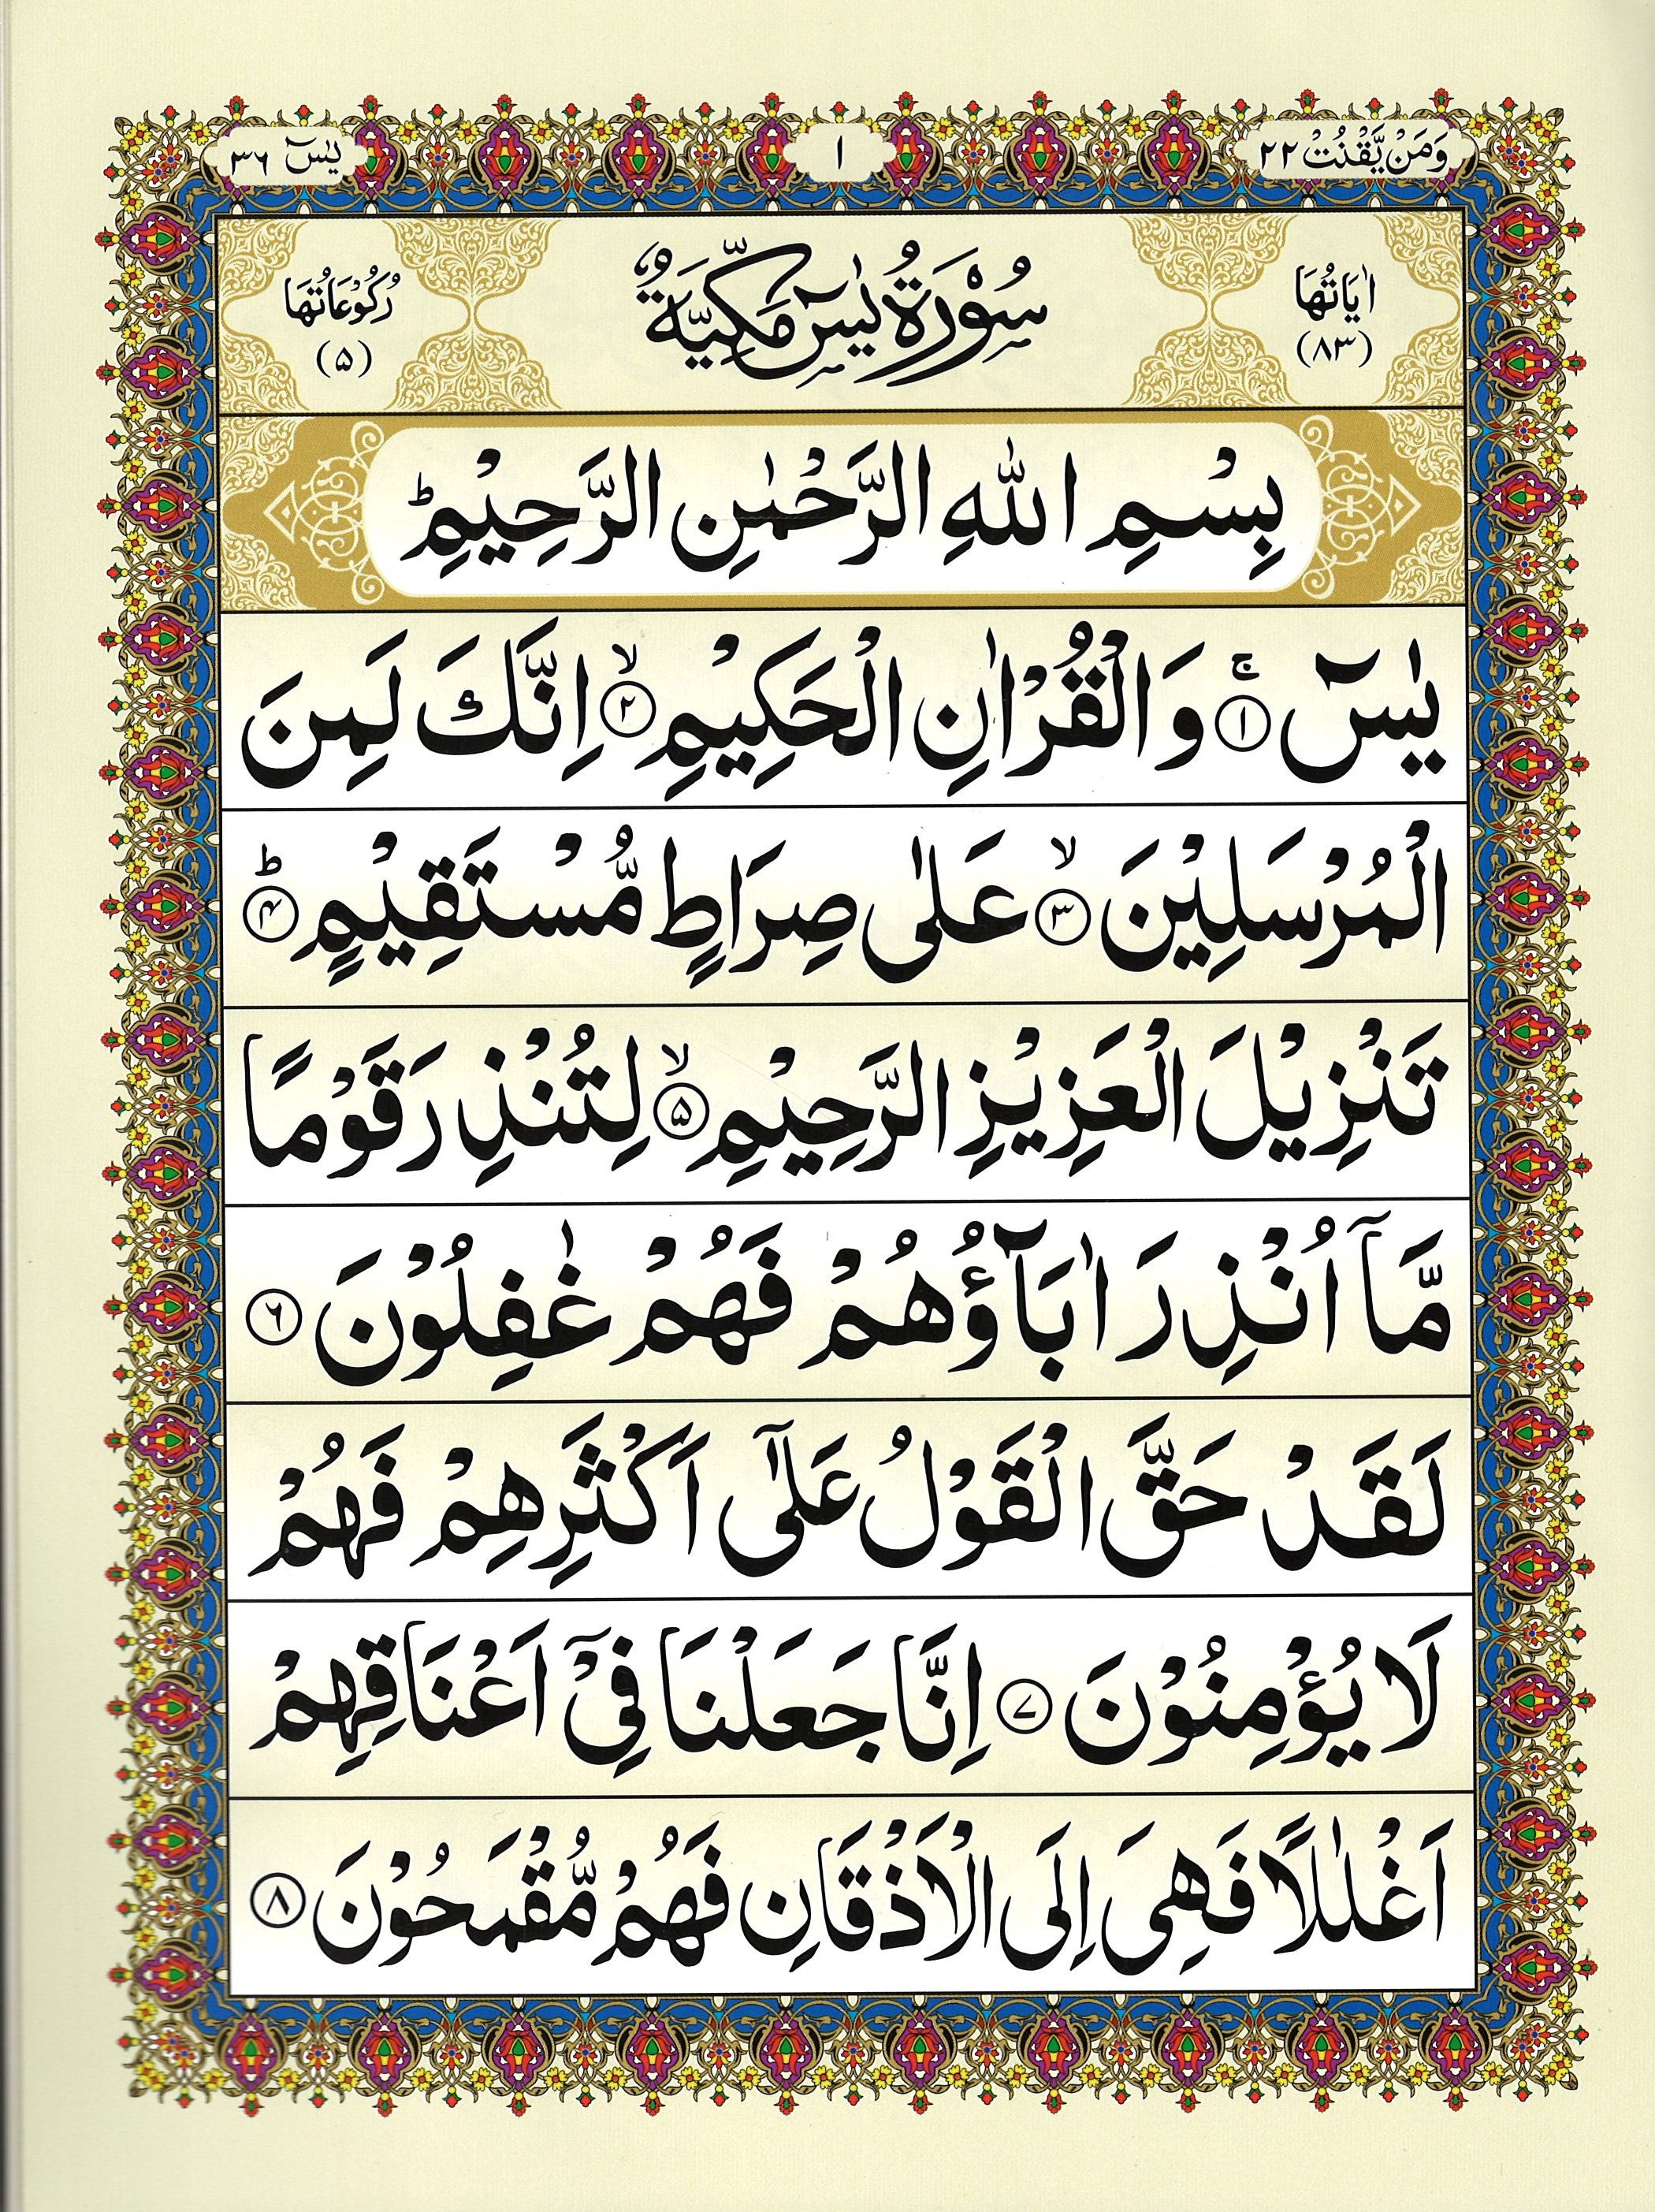 وَمَنْ يَّقْنُتْ ٢٢
١
يٰسٓ ٣٦
اٰيَاتُهَا
(٨٣)
سُوْرَةُ يٰسٓ مَكِّيَّةٌ
رُكُوْعَاتُهَا
(۵)
بِسْمِ اللهِ الرَّحْمٰنِ الرَّحِيْمِ ؕ
يٰسٓ ۚ ﴿١﴾ وَالْقُرْاٰنِ الْحَكِيْمِ ۙ ﴿٢﴾ اِنَّكَ لَمِنَ
الْمُرْسَلِيْنَ ۙ ﴿٣﴾ عَلٰى صِرَاطٍ مُّسْتَقِيْمٍ ؕ ﴿۴﴾
تَنْزِيْلَ الْعَزِيْزِ الرَّحِيْمِ ۙ ﴿۵﴾ لِتُنْذِرَ قَوْمًا
مَّاۤ اُنْذِرَ اٰبَآؤُهُمْ فَهُمْ غٰفِلُوْنَ ﴿۶﴾
لَقَدْ حَقَّ الْقَوْلُ عَلٰۤى اَكْثَرِهِمْ فَهُمْ
لَا يُؤْمِنُوْنَ ﴿٧﴾ اِنَّا جَعَلْنَا فِيْۤ اَعْنَاقِهِمْ
اَغْلٰلًا فَهِيَ اِلَى الْاَذْقَانِ فَهُمْ مُّقْمَحُوْنَ ﴿٨﴾